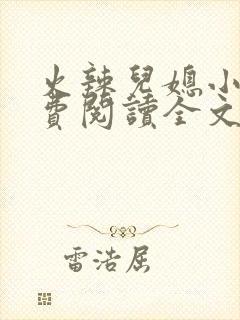 火辣兒媳小
費閱讀全文
雷浩屈